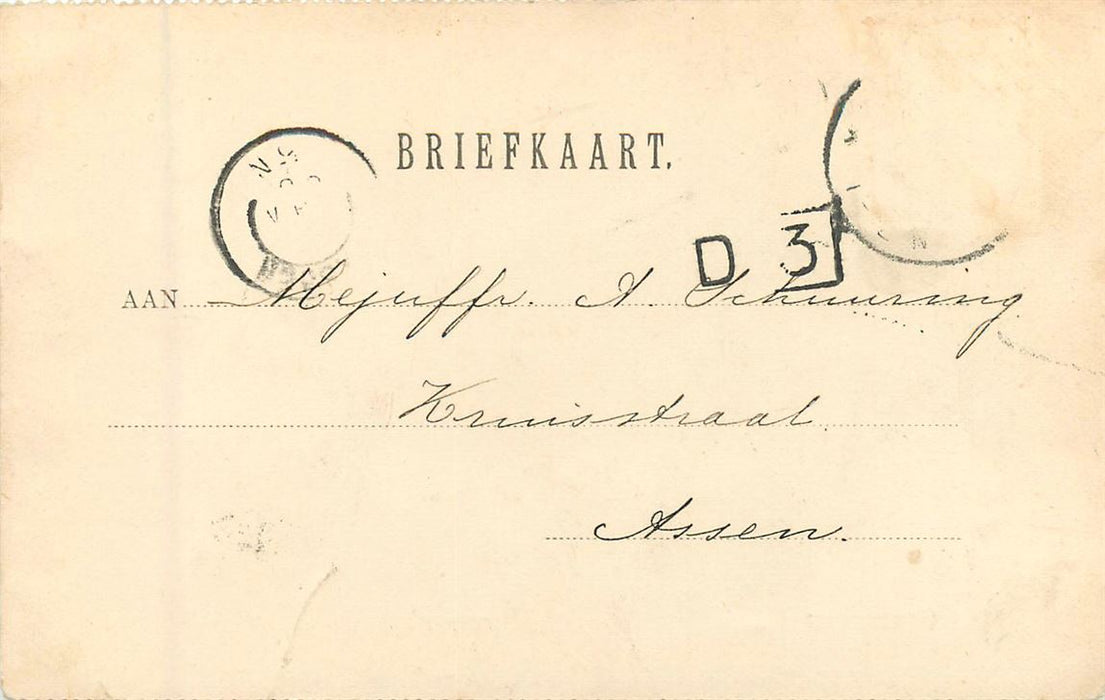 BRIEFKAART.
D 3
AAN Mejuffr. A. Schuuring
Kruisstraat
Assen.